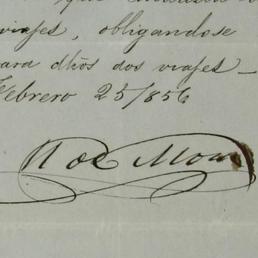 que
viajes, obligandose
para dhos dos viajes_
Febrero 25/856
R de Mom